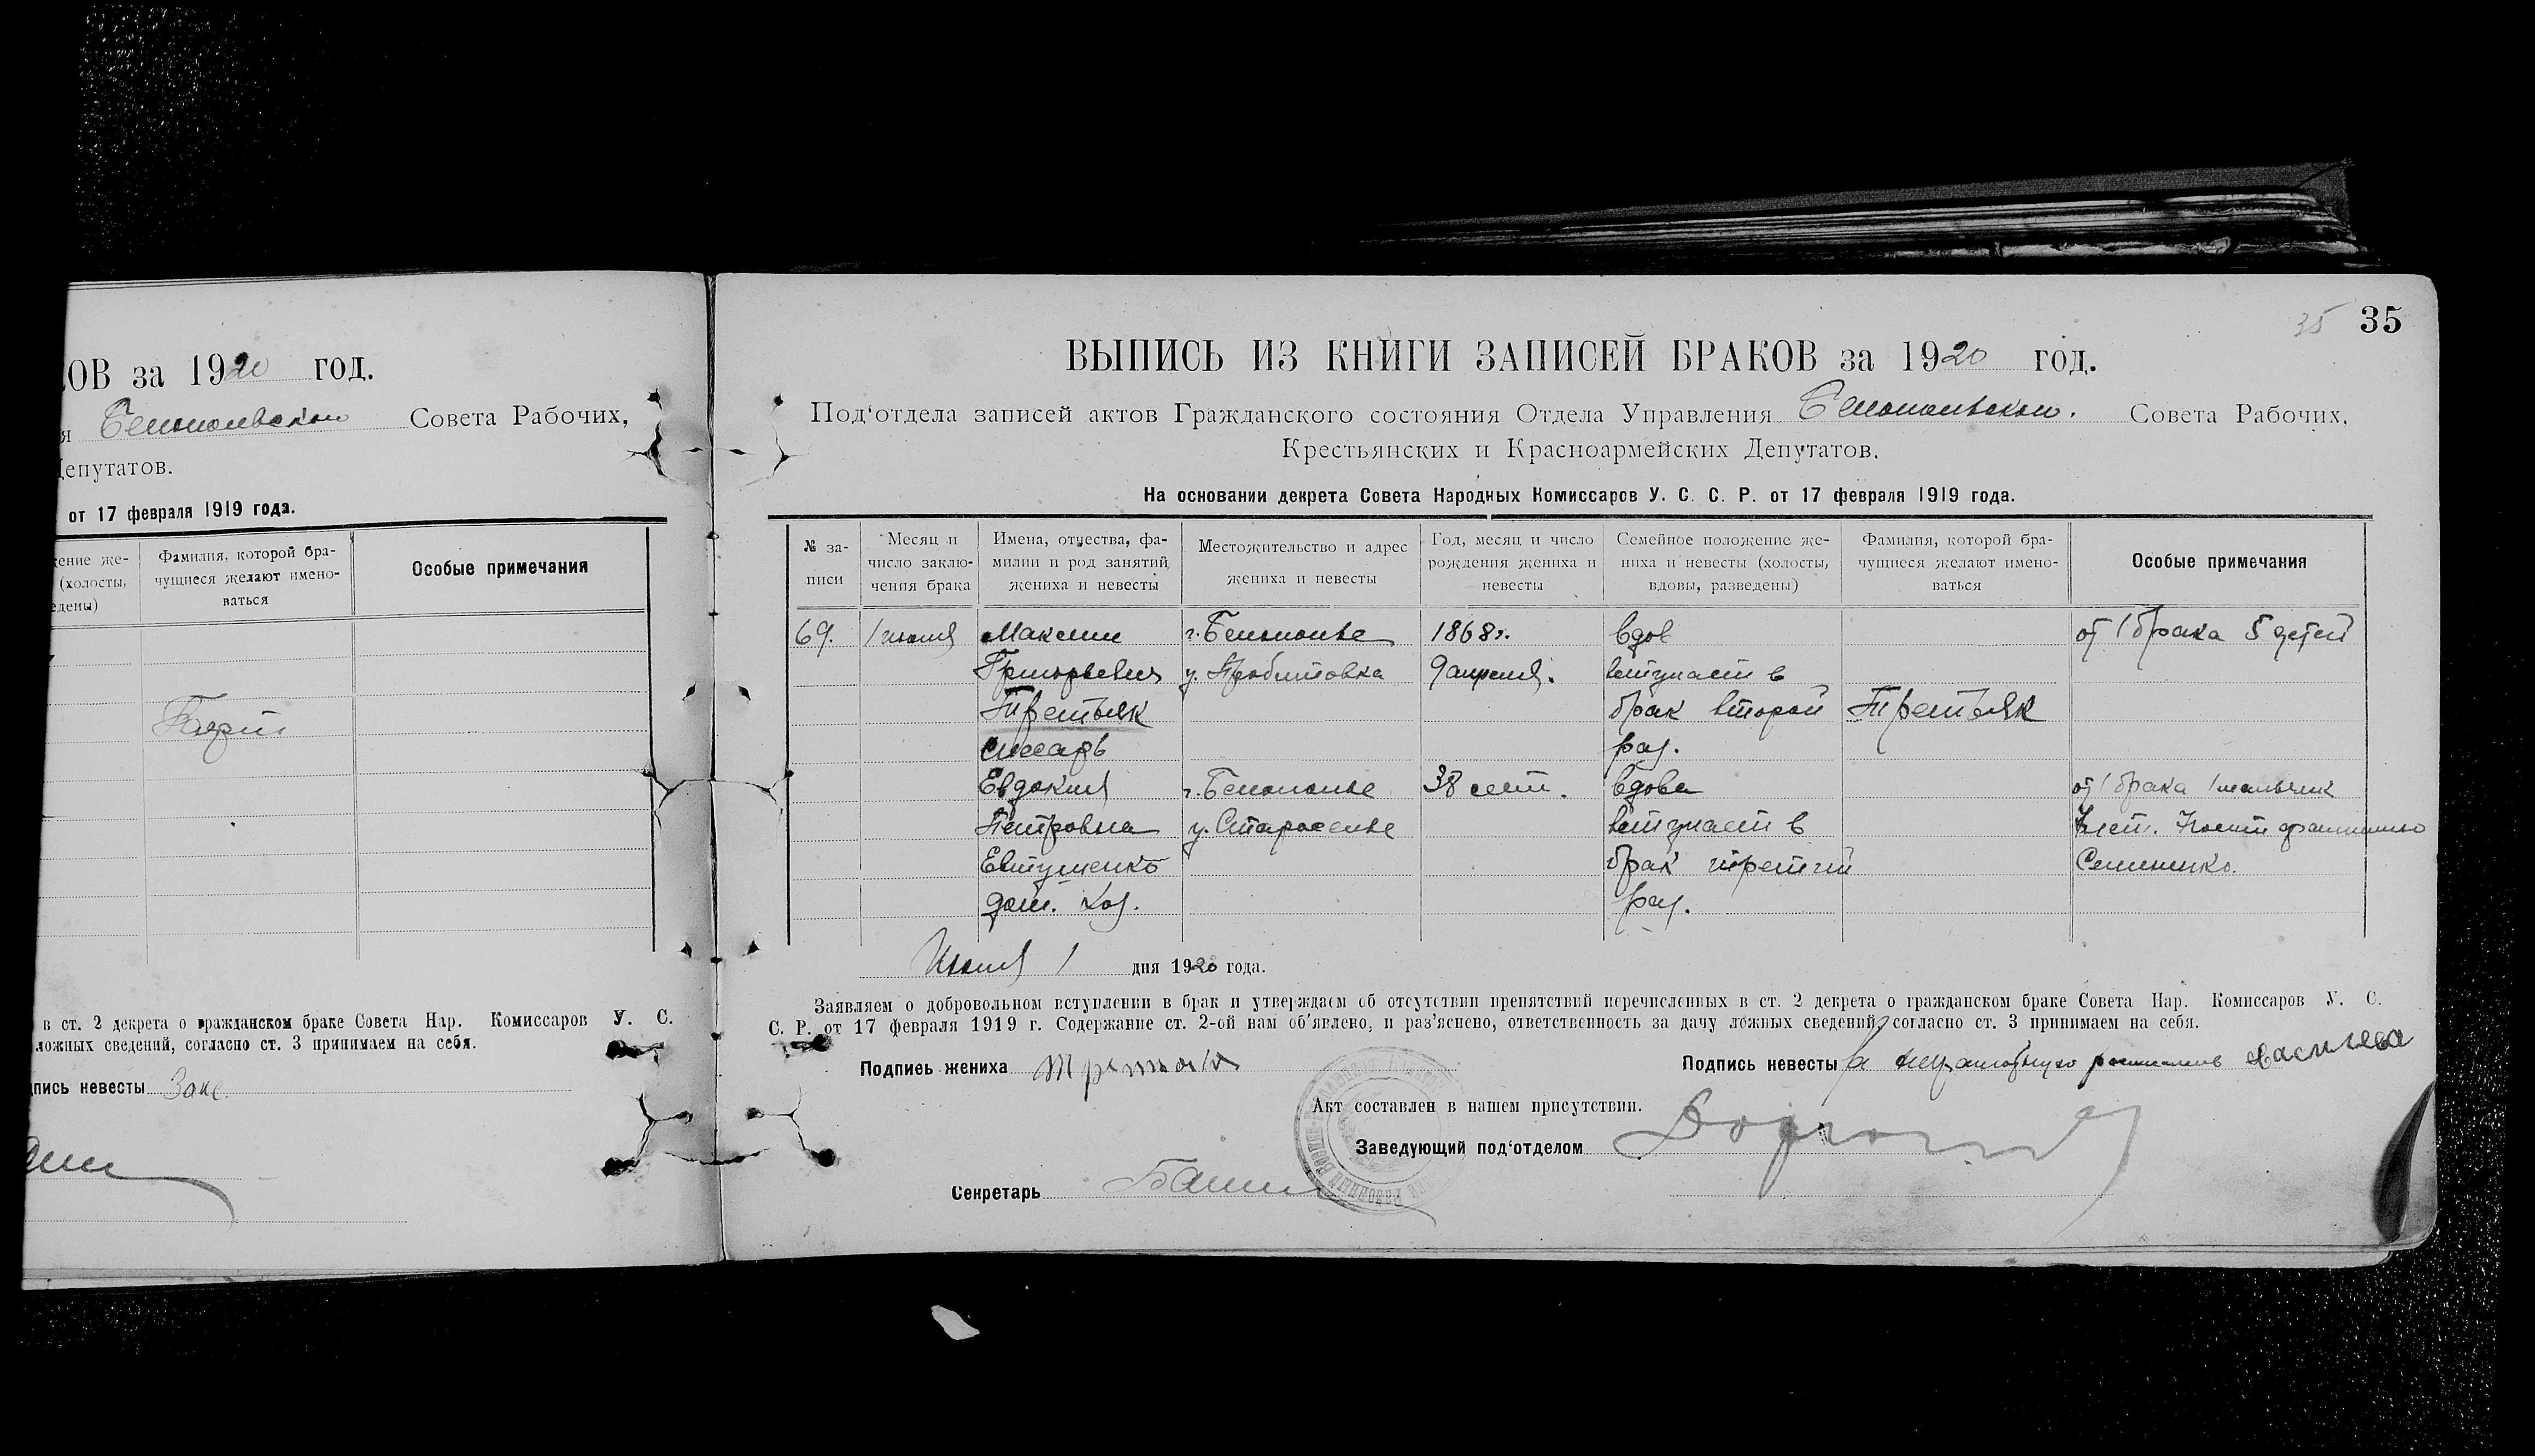 ОВ за 1920 год.
я Белопольском Совета Рабочих,
Депутатов.
от 17 февраля 1919 года.
ение же-
(холосты,
едены)
Фамилия, которой бра-
чущиеся желают имено-
ваться
Особые примечания
в ст. 2 декрета о гражданском браке Совета Нар. Комиссаров У. С.
ложных сведений, согласно ст. 3 принимаем на себя.
пись невесты Закс
35 35
ВЫПИСЬ ИЗ КНИГИ ЗАПИСЕЙ БРАКОВ за 1920 год.
Под‘отдела записей актов Гражданского состояния Отдела Управления Белопольском. Совета Рабочих,
Крестьянских и Красноармейских Депутатов.
На основании декрета Совета Народных Комиссаров У. С. С. Р. от 17 февраля 1919 года.
№ за-
писи
Месяц и
число заклю-
чения брака
Имена, отчества, фа-
милии и род занятий
жениха и невесты
Местожительство и адрес
жениха и невесты
Год, месяц и число
рождения жениха и
невесты
Семейное положение же-
ниха и невесты (холосты,
вдовы, разведены)
Фамилия, которой бра-
чущиеся желают имено-
ваться
Особые примечания
69. 1 июля Максим г. Белополье 1868 г. вдов от 1 брака 5 детей
Григорьевич у. 9 апреля. вступает в
Третьяк брак второй Третьяк
слесарь раз.
Евдокия г. Белополье 38 лет. вдова от 1 брака 1 мальчик
Петровна у. Староселье вступает в лет. Носит фамилию
Евтушенко брак третий
дом. хоз. раз.
Июля 1 дня 1920 года.
Заявляем о добровольном вступлении в брак и утверждаем об отсутствии препятствий перечисленных в ст. 2 декрета о гражданском браке Совета Нар. Комиссаров У. С.
С. Р. от 17 февраля 1919 г. Содержание ст. 2-ой нам об‘явлено, и раз‘яснено, ответственность за дачу ложных сведений, согласно ст. 3 принимаем на себя.
Подпись жениха Третьяк Подпись невесты За неграмотную
Акт составлен в нашем присутствии.
Заведующий под‘отделом
Секретарь